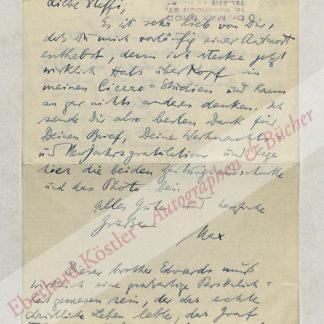 Dr. MAX BROD
16, HAYARDEN ST.
TEL-AVIV
Liebe Steffi,
Es ist sehr lieb von Dir,
daß Du mich vorläufig einer Antwort
enthebst, denn ich stecke jetzt
wirklich Hals über Kopf in
meinen Cicero-Studien und kann
an gar nichts anderes denken. Ich
sende Dir also besten Dank für
Deinen Brief, Deine Weihnachts-
und Neujahrsgratulation und lege
hier die beiden Zeitungsausschnitte
und das Photo bei.
Alles Gute und herzliche
Grüße
Max
Deines Bruders Edvards muß
wirklich eine großartige Persönlich-
keit gewesen sein, der das echte
christliche Leben lebte, das Graf
Eberhard Köstler - Autographen & Bücher